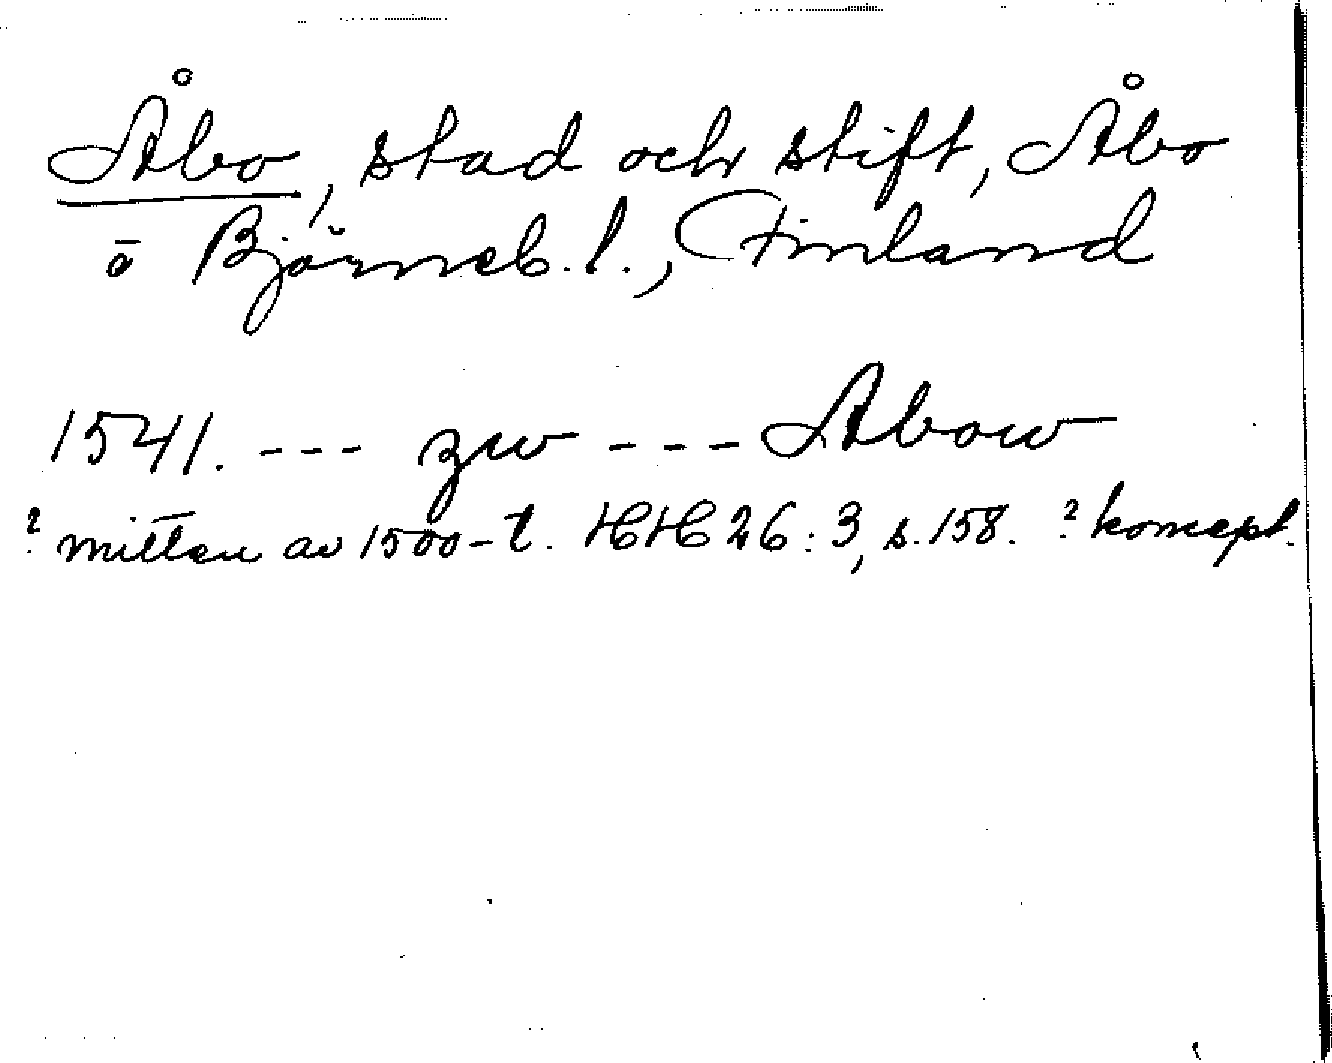 Åbo, stad och stift, Åbo
o Björneb. l., Finland
1541. --- zw --- Abow
? mitten av 1500-t. HH 26:3, s. 158. ? koncept.